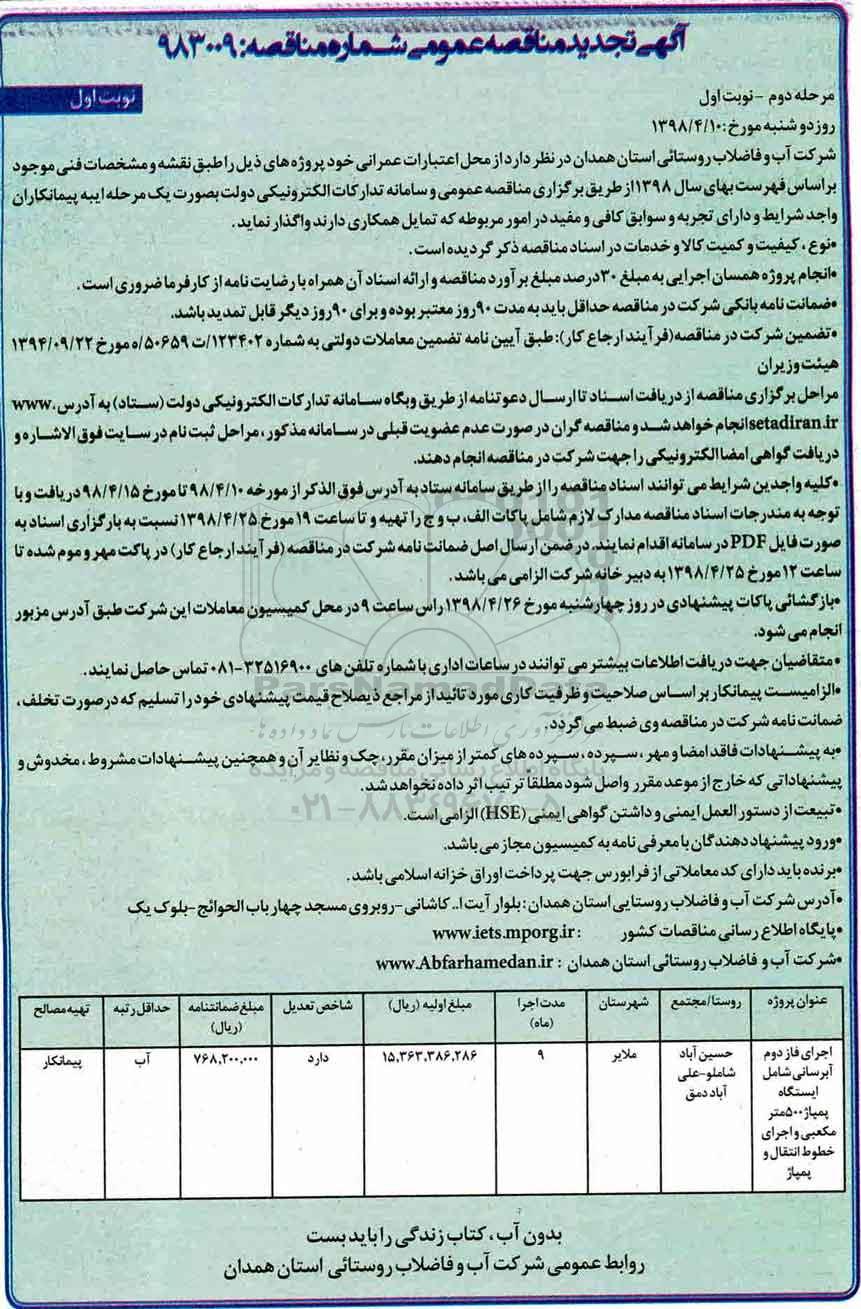 آگهی تجدید مناقصه عمومی شماره مناقصه: ۹۸۳۰۰۹
نوبت اول
مرحله دوم - نوبت اول
روز دو شنبه مورخ: ۱۳۹۸/۴/۱۰
شرکت آب و فاضلاب روستائی استان همدان در نظر دارد از محل اعتبارات عمرانی خود پروژه های ذیل را طبق نقشه و مشخصات فنی موجود
بر اساس فهرست بهای سال ۱۳۹۸از طریق برگزاری مناقصه عمومی و سامانه تدارکات الکترونیکی دولت بصورت یک مرحله ایبه پیمانکاران
واجد شرایط و دارای تجربه و سوابق کافی و مفید در امور مربوطه که تمایل همکاری دارند واگذار نماید.
•نوع ، کیفیت و کمیت کالا و خدمات در اسناد مناقصه ذکر گردیده است.
•انجام پروژه همسان اجرایی به مبلغ ۳۰درصد مبلغ برآورد مناقصه و ارائه اسناد آن همراه با رضایت نامه از کارفرما ضروری است.
•ضمانت نامه بانکی شرکت در مناقصه حداقل باید به مدت ۹۰روز معتبر بوده و برای ۹۰روز دیگر قابل تمدید باشد.
•تضمین شرکت در مناقصه(فرآیند ارجاع کار): طبق آیین نامه تضمین معاملات دولتی به شماره ۱۲۳۴۰۲/ت ۵۰۶۵۹/ه مورخ ۱۳۹۴/۰۹/۲۲
هیئت وزیران
مراحل برگزاری مناقصه از دریافت اسناد تا ارسال دعوتنامه از طریق وبگاه سامانه تدارکات الکترونیکی دولت (ستاد) به آدرس، www
setadiran.irانجام خواهد شد و مناقصه گران در صورت عدم عضویت قبلی در سامانه مذکور، مراحل ثبت نام در سایت فوق الاشاره و
دریافت گواهی امضا الکترونیکی را جهت شرکت در مناقصه انجام دهند.
•کلیه واجدین شرایط می توانند اسناد مناقصه را از طریق سامانه ستاد به آدرس فوق الذکر از مورخه ۹۸/۴/۱۰ تا مورخ ۹۸/۴/۱۵ دریافت و با
توجه به مندرجات اسناد مناقصه مدارک لازم شامل پاکات الف، ب و ج را تهیه و تا ساعت ۱۹ مورخ ۱۳۹۸/۴/۲۵نسبت به بارگزاری اسناد به
صورت فایل PDF در سامانه اقدام نمایند. در ضمن ارسال اصل ضمانت نامه شرکت در مناقصه (فرآیند ارجاع کار) در پاکت مهر و موم شده تا
ساعت ۱۲ مورخ ۱۳۹۸/۴/۲۵ به دبیر خانه شرکت الزامی می باشد.
•بازگشائی پاکات پیشنهادی در روز چهارشنبه مورخ ۱۳۹۸/۴/۲۶ راس ساعت ۹ در محل کمیسیون معاملات این شرکت طبق آدرس مزبور
انجام می شود.
•متقاضیان جهت دریافت اطلاعات بیشتر می توانند در ساعات اداری با شماره تلفن های ۳۲۵۱۶۹۰۰-۰۸۱ تماس حاصل نمایند.
•الزامیست پیمانکار بر اساس صلاحیت و ظرفیت کاری مورد تائید از مراجع ذیصلاح قیمت پیشنهادی خود را تسلیم که درصورت تخلف،
ضمانت نامه شرکت در مناقصه وی ضبط می گردد.
•به پیشنهادات فاقد امضا و مهر، سپرده ، سپرده های کمتر از میزان مقرر، چک و نظایر آن و همچنین پیشنهادات مشروط ، مخدوش و
پیشنهاداتی که خارج از موعد مقرر واصل شود مطلقا ترتیب اثر داده نخواهد شد.
•تبیعت از دستور العمل ایمنی و داشتن گواهی ایمنی (HSE) الزامی است.
•ورود پیشنهاد دهندگان با معرفی نامه به کمیسیون مجاز می باشد.
•برنده باید دارای کد معاملاتی از فرابورس جهت پرداخت اوراق خزانه اسلامی باشد.
•آدرس شرکت آب و فاضلاب روستایی استان همدان: بلوار آیت ا.. کاشانی-روبروی مسجد چهار باب الحوائج-بلوک یک
•پایگاه اطلاع رسانی مناقصات کشور : www.iets.mporg.ir
•شرکت آب و فاضلاب روستائی استان همدان : www.Abfarhamedan.ir
عنوان پروژه روستا/مجتمع شهرستان مدت اجرا (ماه) مبلغ اولیه (ریال) شاخص تعدیل مبلغ ضمانتنامه (ریال) حداقل رتبه تهیه مصالح
اجرای فاز دوم آبرسانی شامل ایستگاه پمپاژ ۵۰۰متر مکعبی و اجرای خطوط انتقال و پمپاژ
حسین آباد شاملو-علی آباد دمق
ملایر
۹
۱۵,۳۶۳,۳۸۶,۲۸۶
دارد
۷۶۸,۲۰۰,۰۰۰
آب
پیمانکار
بدون آب ، کتاب زندگی را باید بست
روابط عمومی شرکت آب و فاضلاب روستائی استان همدان